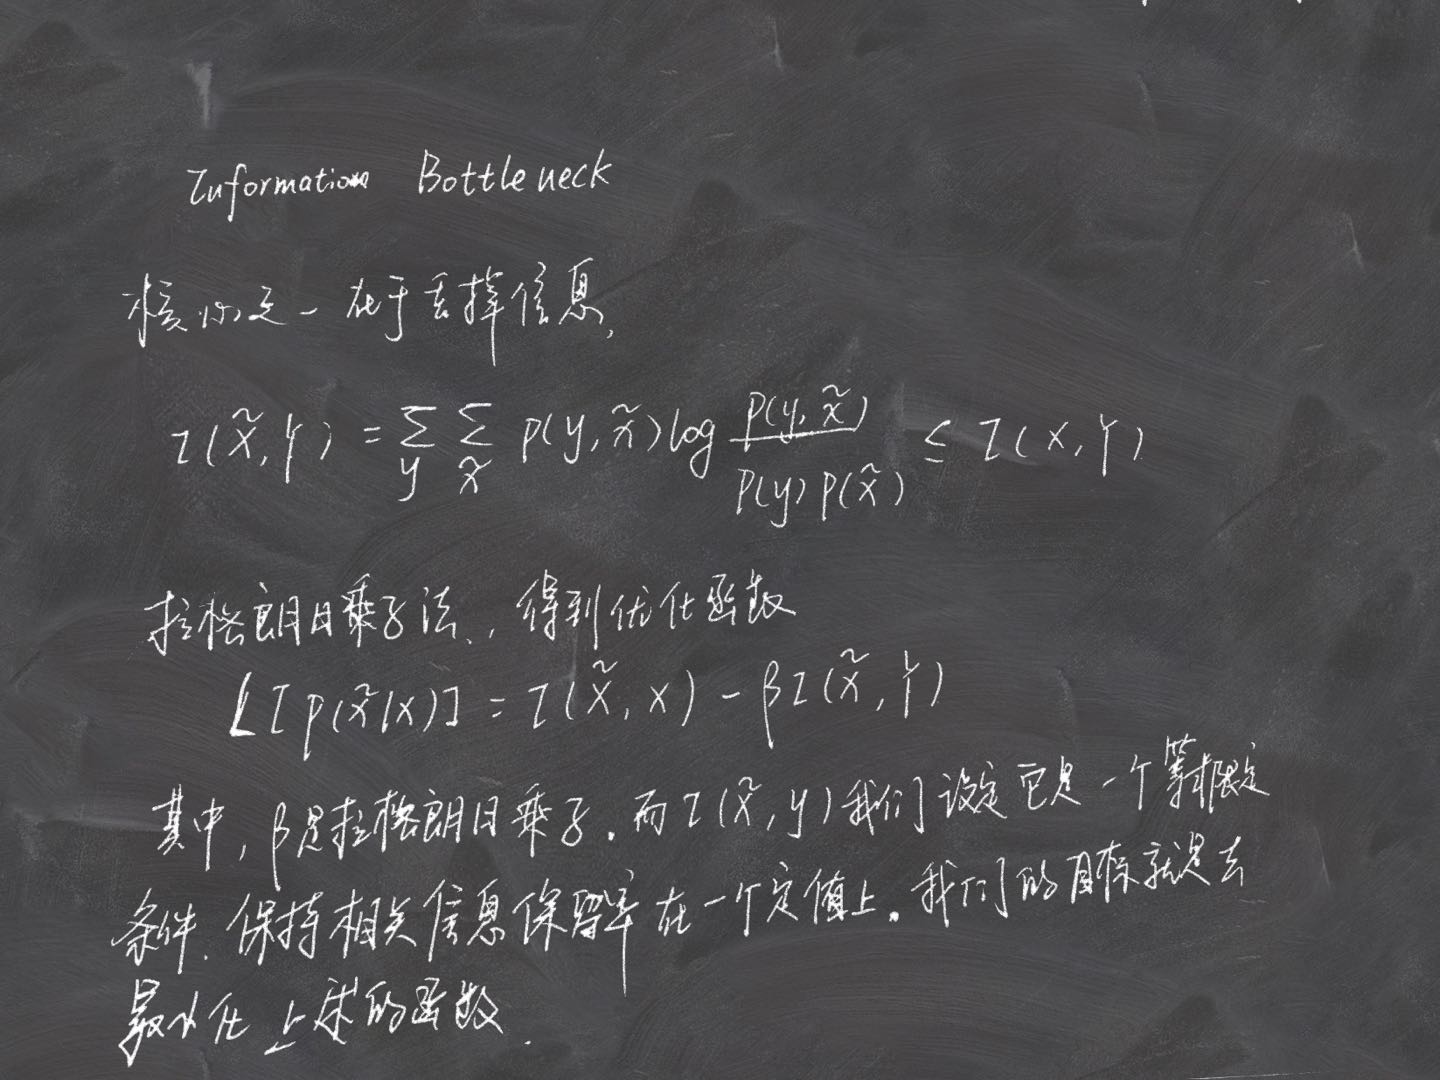 Information Bottleneck
核心之一在于丢掉信息,
I(X̃,Y) = ∑_y ∑_x̃ p(y,x̃) log p(y,x̃) / p(y)p(x̃) ≤ I(X,Y)
拉格朗日乘子法, 得到优化函数
L[p(x̃|x)] = I(X̃,X) - βI(X̃,Y)
其中, β是拉格朗日乘子. 而I(X̃,y)我们设定它是一个等限定
条件. 保持相关信息保留率在一个定值上. 我们的目标就是去
最小化上述的函数.